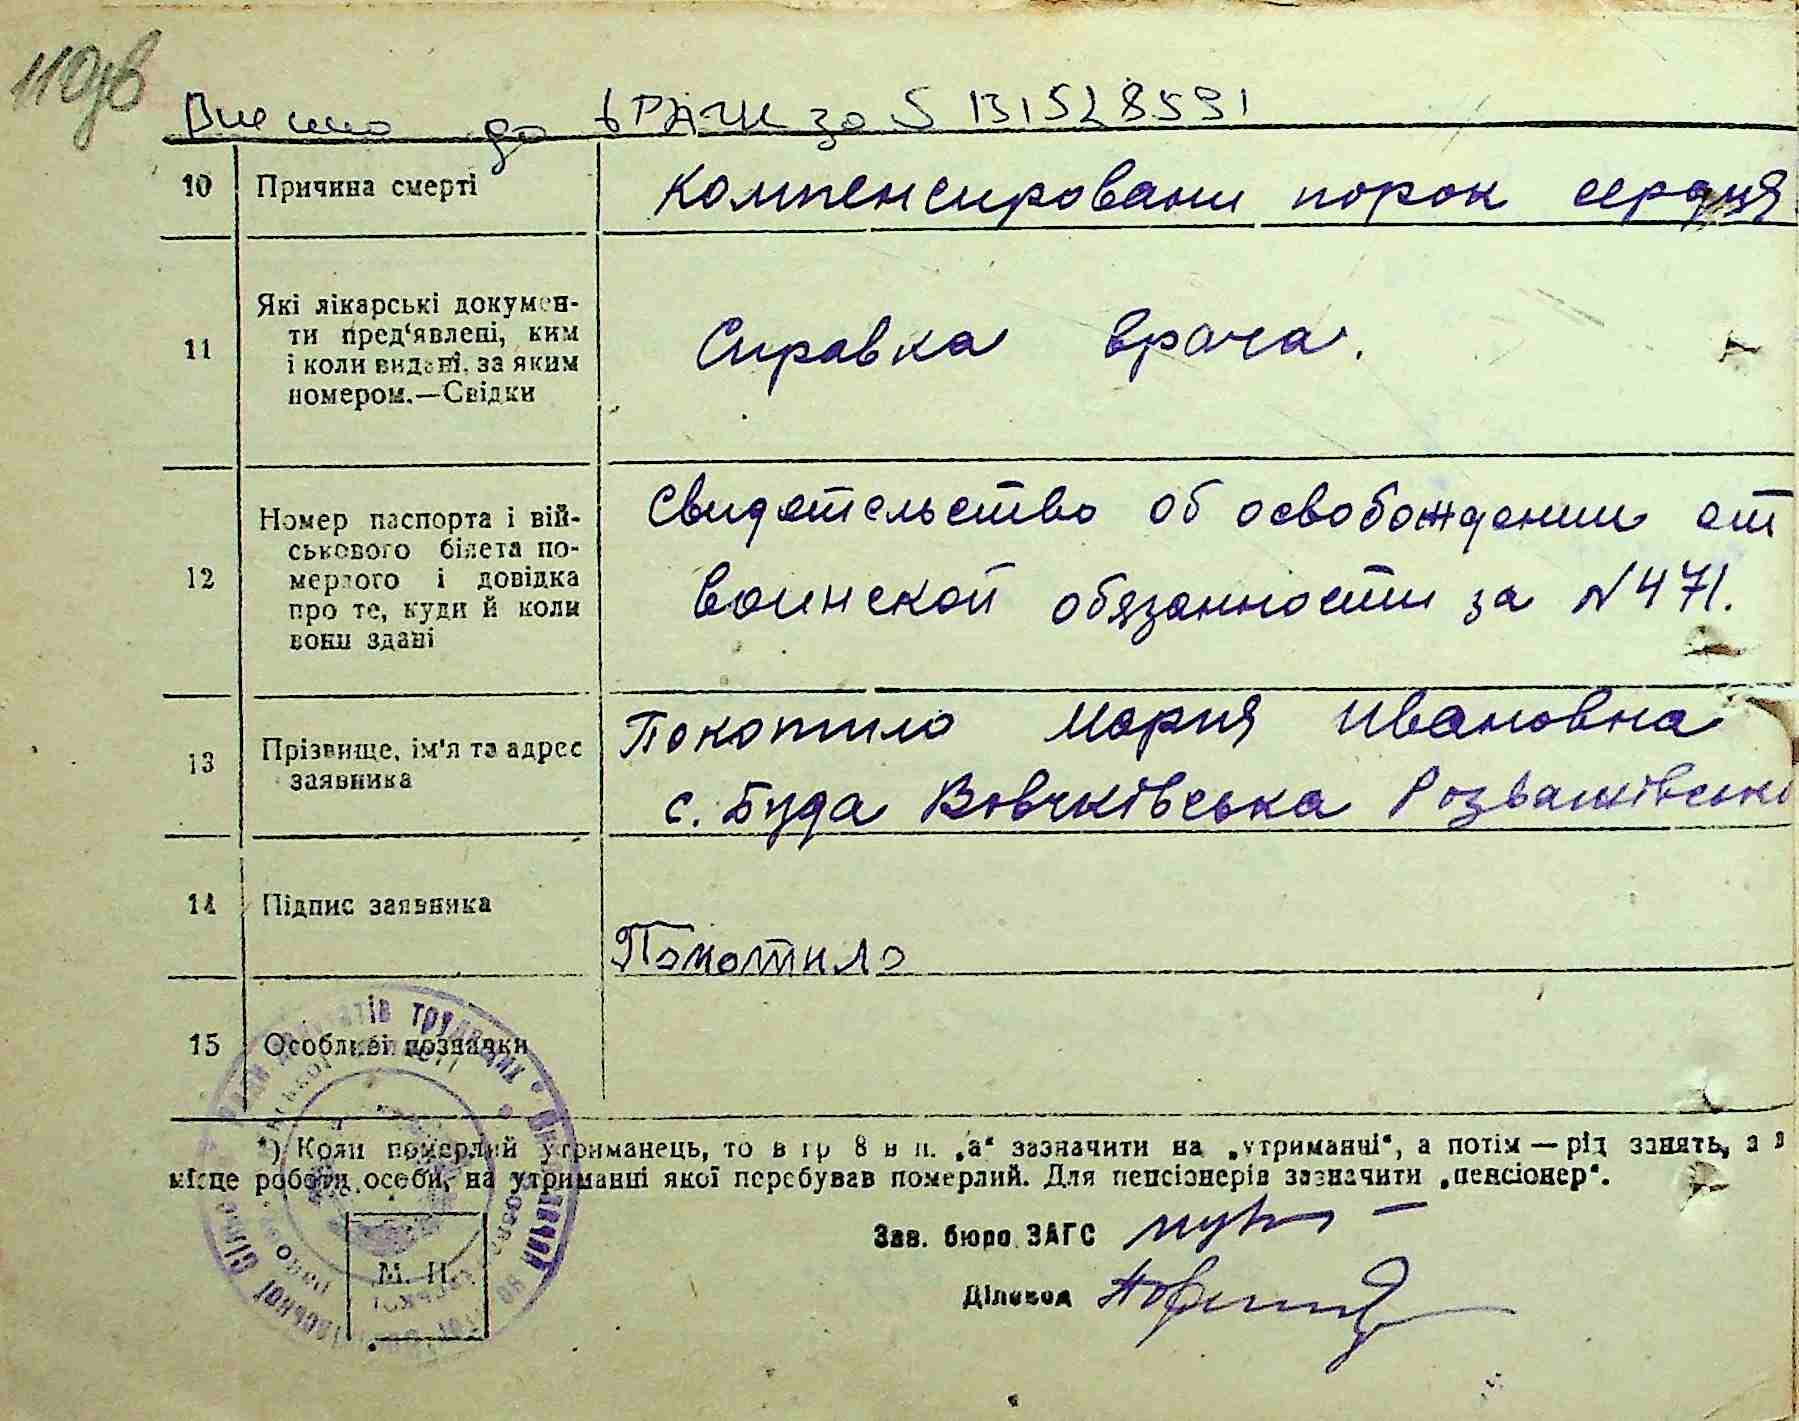 110зв
Внесено до ДРАЦС за № 131528591
10 Причина смерті
компенсировани порок сердця
11 Які лікарські докумен-
ти пред‘явлені, ким
і коли видані, за яким
номером.—Свідки
Справка врача.
12 Номер паспорта і вій-
ськового білета по-
мерлого і довідка
про те, куди й коли
вони здані
Свидетельство об освобождении от
воинской обязанности за №471.
13 Прізвище, ім'я та адрес
заявника
Покотило Мария Ивановна
с. Буда Вовчківська Розважівськ
14 Підпис заявника
Покотило
15 Особливі позначки
*) Коли померлий утриманець, то в гр 8 в п. „а“ зазначити на „утриманні“, а потім — рід занять, а в
місце роботи особи, на утриманні якої перебував померлий. Для пенсіонерів зазначити „пенсіонер“.
Зав. бюро ЗАГС
Діловод
М. П.
депутатів трудящих